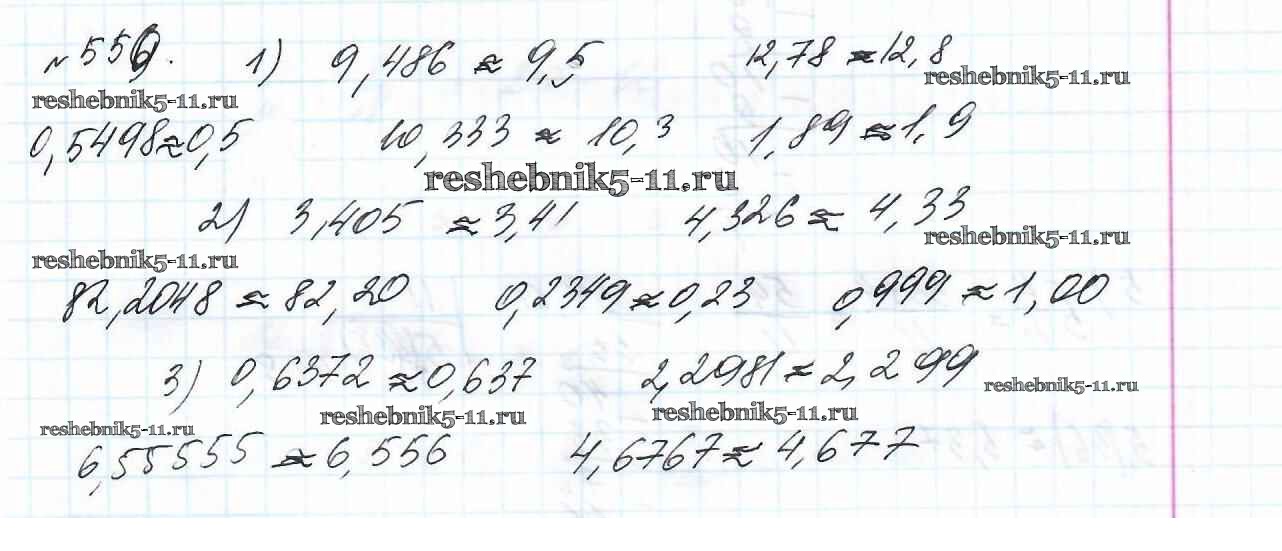 № 559. 1) 9,486 ≈ 9,5 12,78 ≈ 12,8
reshebnik5-11.ru reshebnik5-11.ru
0,5498 ≈ 0,5 10,333 ≈ 10,3 1,89 ≈ 1,9
reshebnik5-11.ru
2) 3,405 ≈ 3,41 4,326 ≈ 4,33
reshebnik5-11.ru reshebnik5-11.ru
82,2048 ≈ 82,20 0,2349 ≈ 0,23 0,999 ≈ 1,00
3) 0,6372 ≈ 0,637 2,2981 ≈ 2,299
reshebnik5-11.ru reshebnik5-11.ru reshebnik5-11.ru reshebnik5-11.ru
6,55555 ≈ 6,556 4,6767 ≈ 4,677